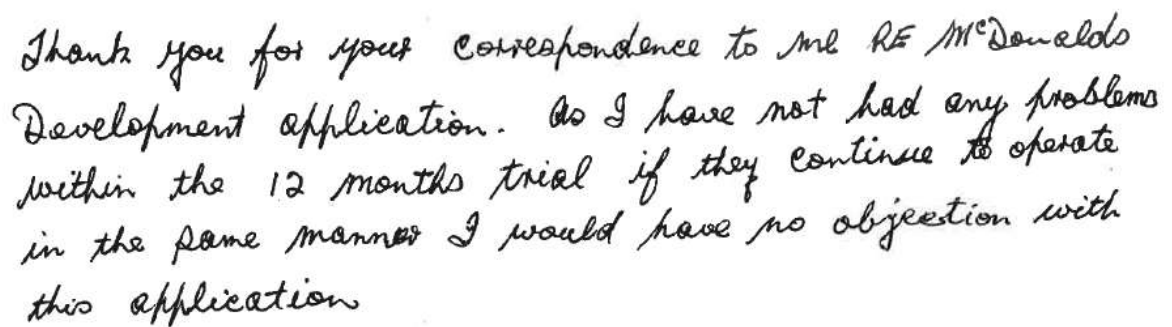 Thank you for your correspondence to me RE McDonalds
Development application. As I have not had any problems
within the 12 months trial if they continue to operate
in the same manner I would have no objection with
this application